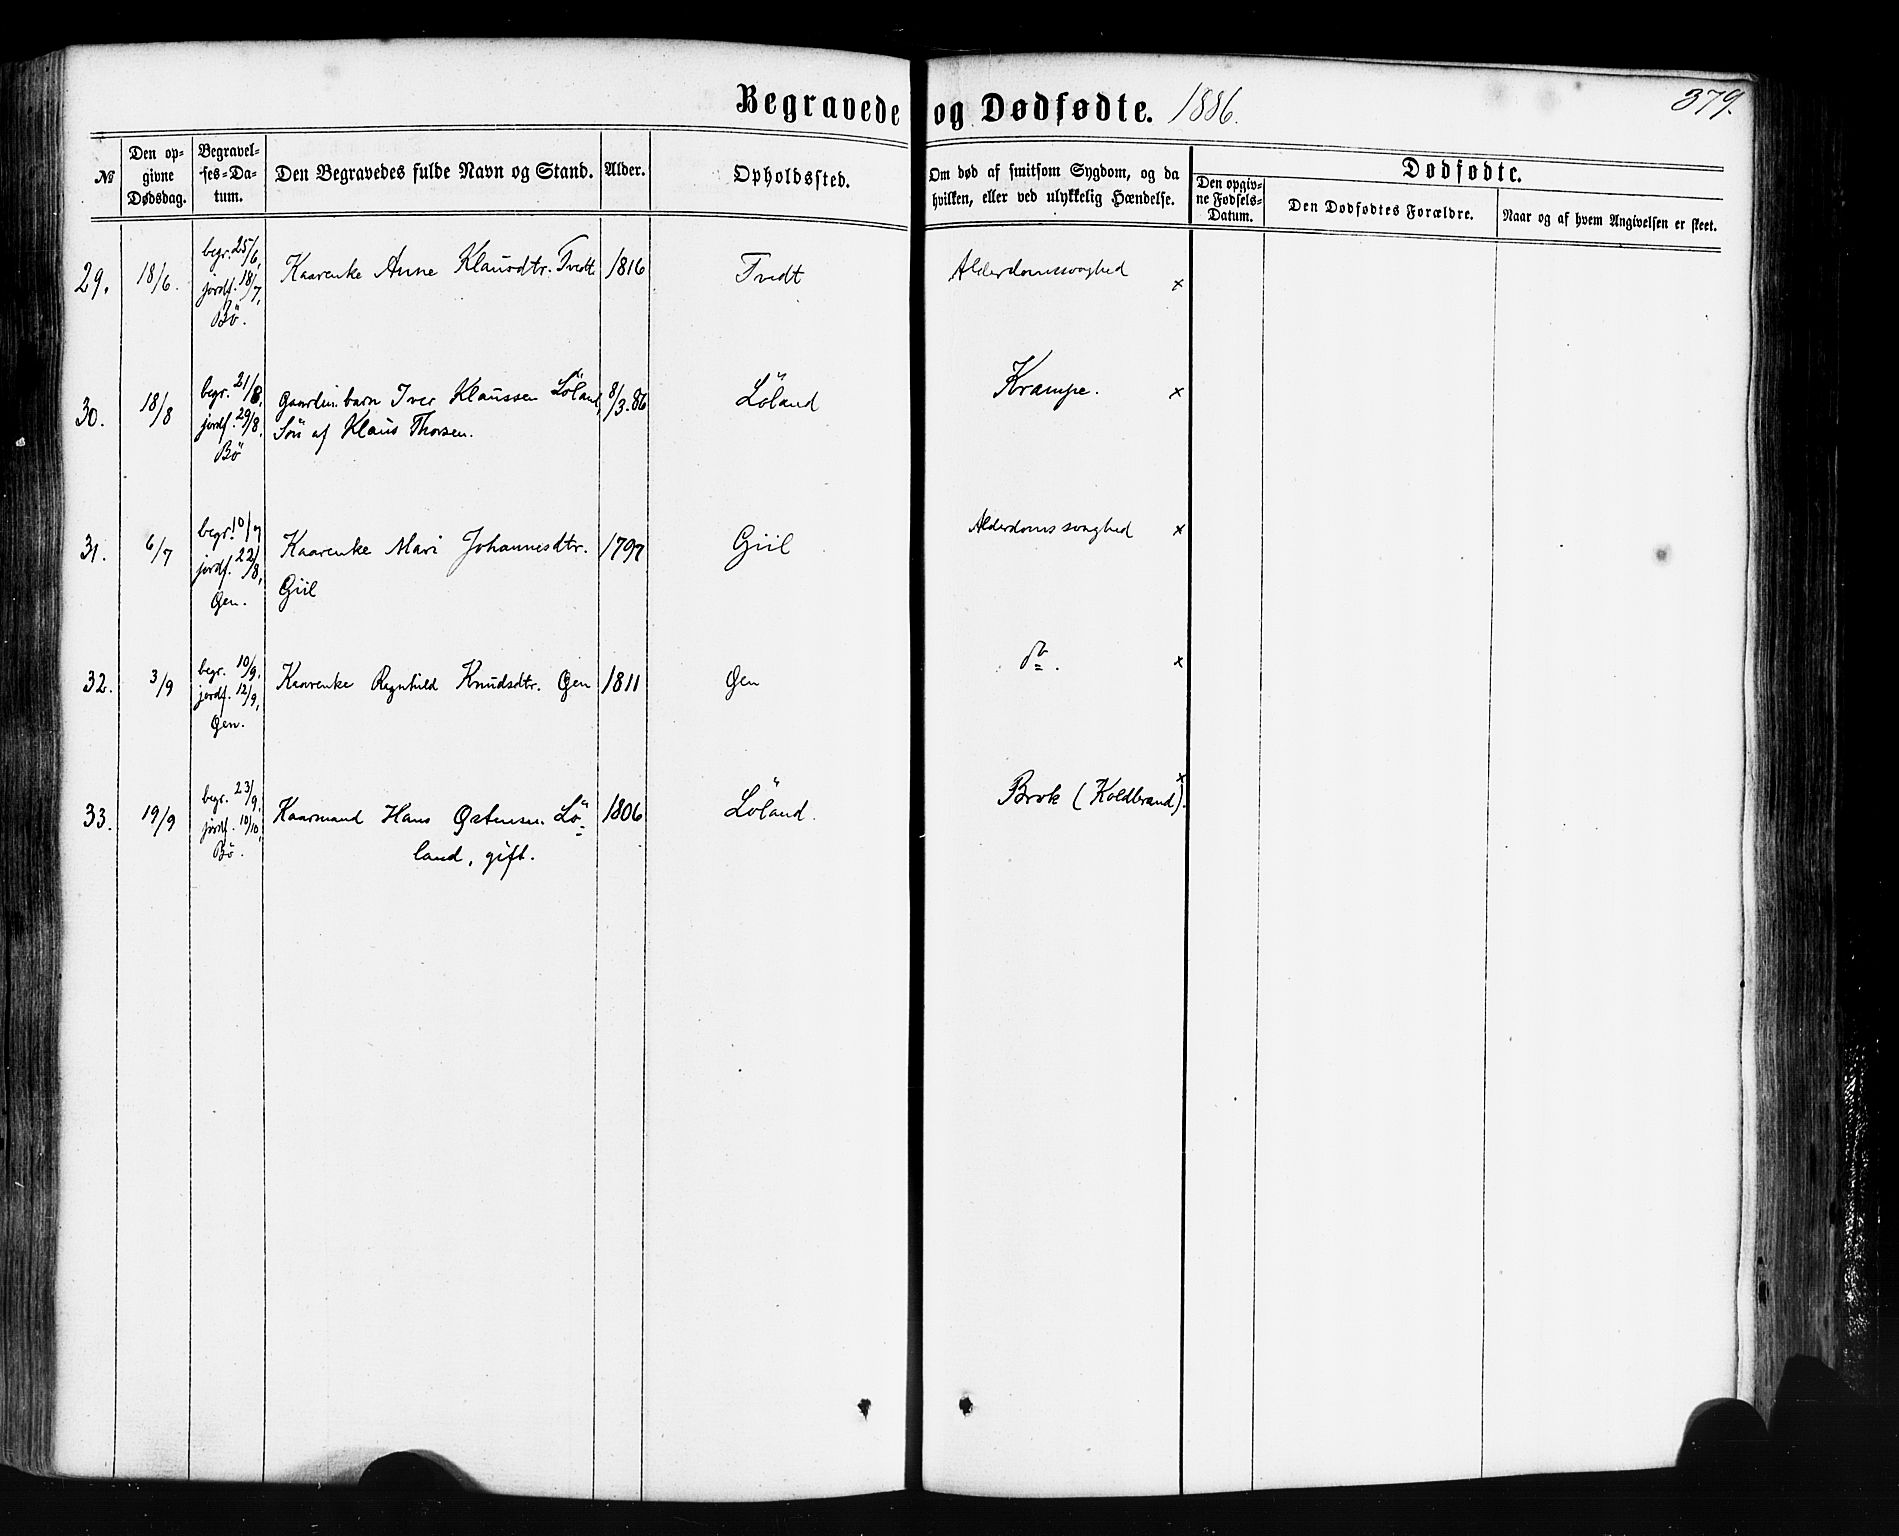 Begravede og Dødfødte. 1886.
379.
№
Den op-
givne
Dødsdag.
Begravel-
ses-Da-
tum.
Den Begravedes fulde Navn og Stand.
Alder.
Opholdssted.
Om død af smitsom Sygdom, og da
hvilken, eller ved ulykkelig Hændelse.
Dødfødte.
Den opgiv-
ne Fødsels-
Datum.
Den Dødfødtes Forældre.
Naar og af hvem Angivelsen er skeet.
29.
18/6.
begr. 25/6,
jordf. 18/7,
Bö.
Kaarenke Anne Klausdtr. Tvedt
1816
Tvedt
Alderdomssvaghed
x
30.
18/8
begr. 21/8,
jordf. 29/8,
Bö
Gaardm. barn Iver Klaussen Löland,
Sön af Klaus Thorsen.
8/3.86
Löland
Krampe.
x
31.
6/7
begr. 10/7
jordf. 22/8,
Øen.
Kaarenke Mari Johannesdtr.
Giil
1797
Giil
Alderdomssvaghed
x
32.
3/9
begr. 10/9.
jordf. 12/9,
Øen.
Kaarenke Regnhild Knudsdtr. Øen
1811
Øen
do.
x
33.
19/9
begr. 23/9,
jordf. 10/10,
Bö.
Kaarmand Hans Østensen Lö-
land, gift.
1806
Löland.
Brok (Koldbrand).
x